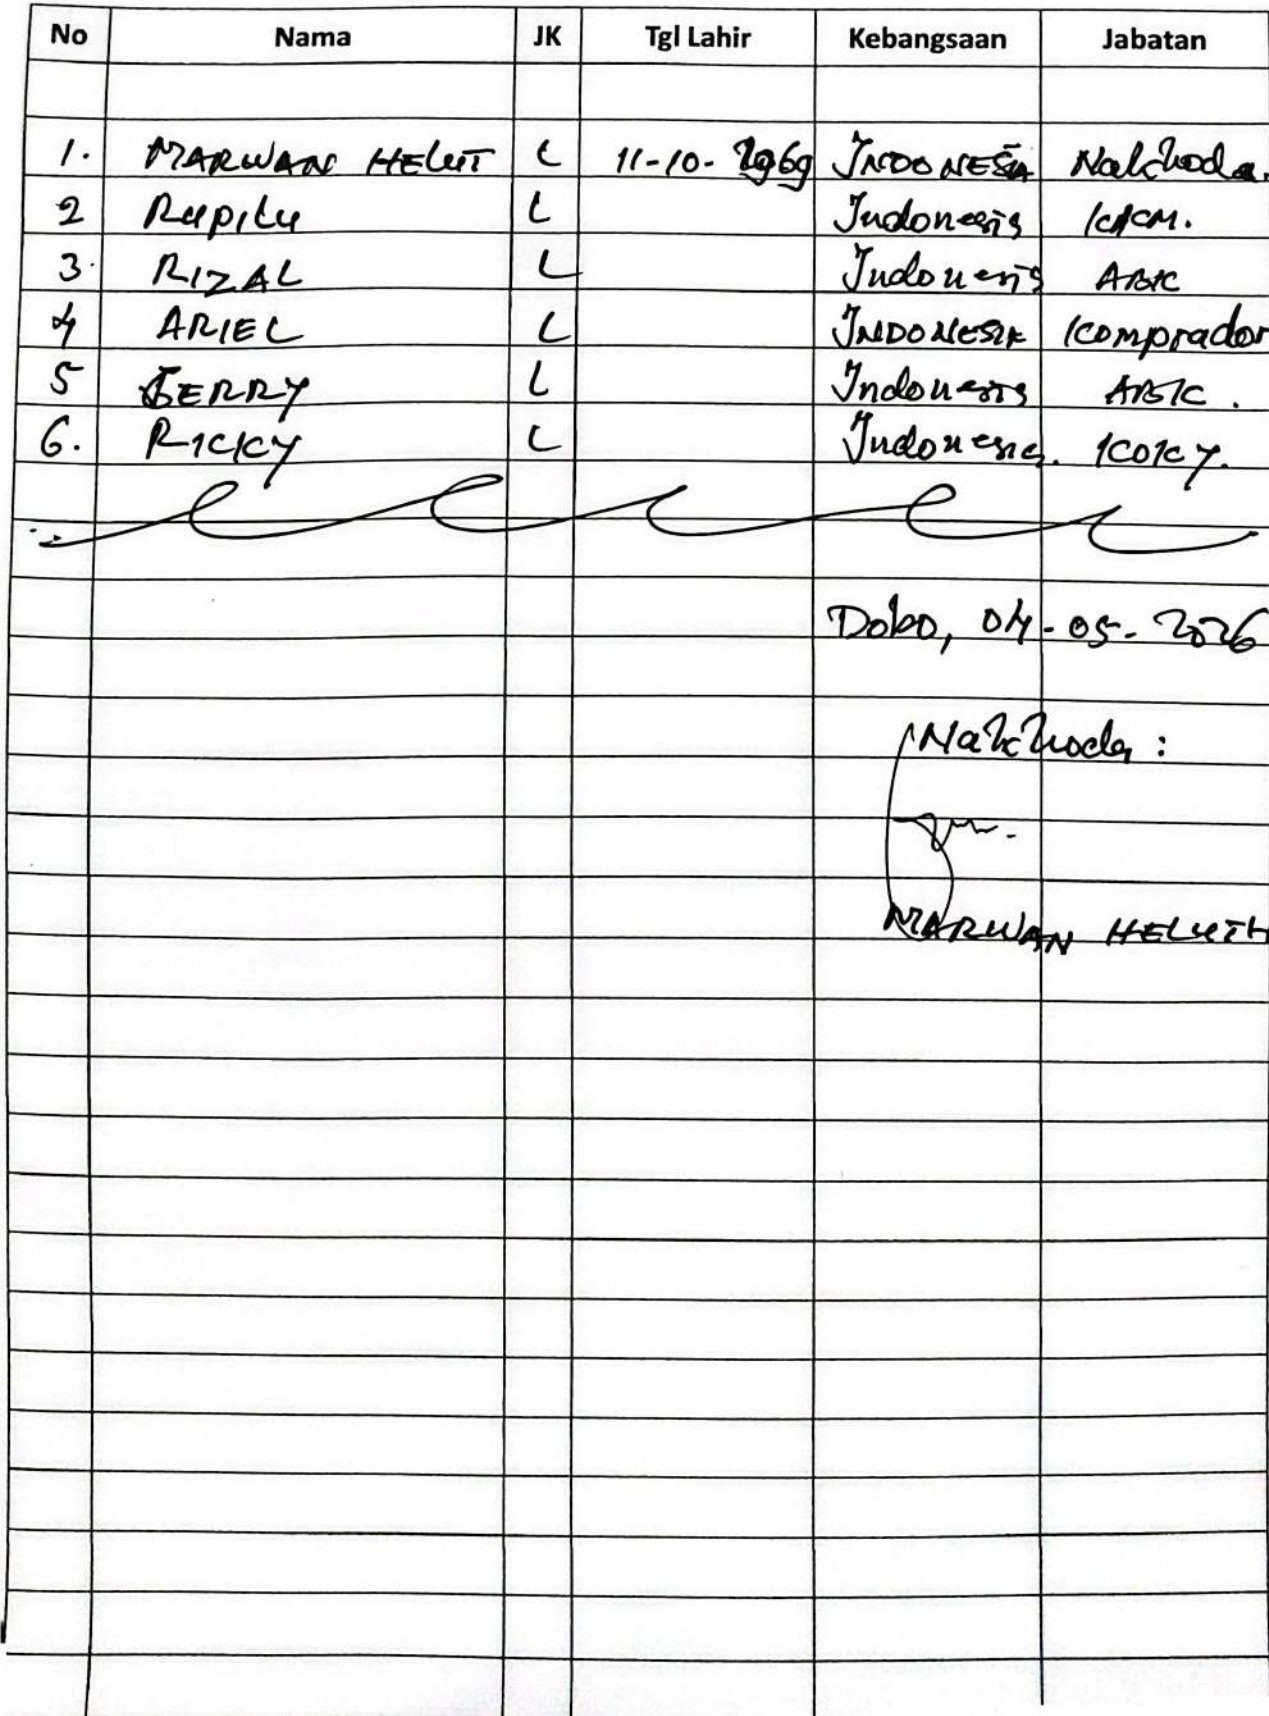 No Nama JK Tgl Lahir Kebangsaan Jabatan
1. MARWAN HELUT L 11-10-1969 INDONESIA Nakhoda.
2 L Indonesia KKM.
3. RIZAL L Indonesia ABK
4 ARIEL L INDONESIA Komprador
5 JERRY L Indonesia ABK.
6. RICKY L Indonesia. KOKY.
Dobo, 04-05-2026
Nakhoda:
MARWAN HELUTH